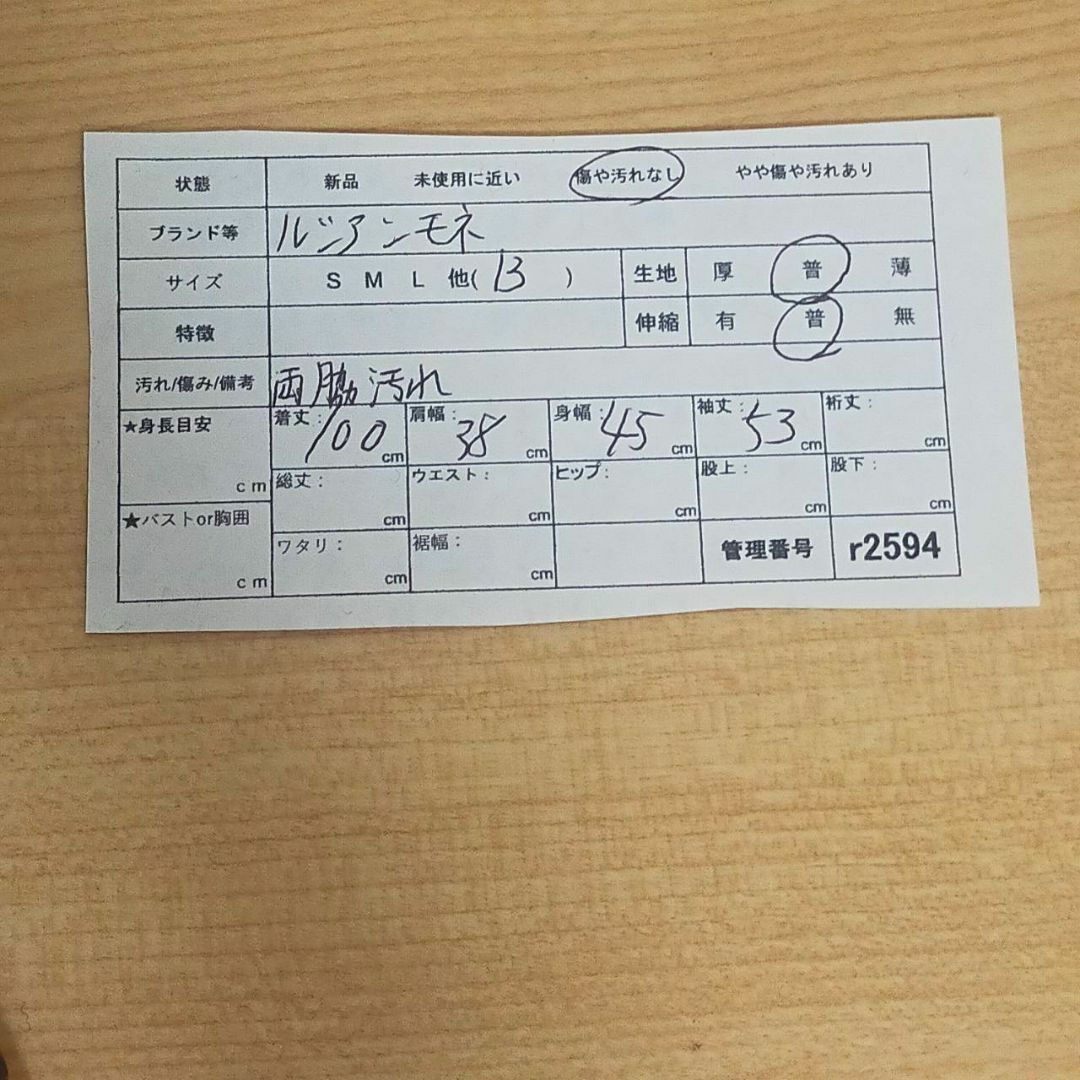 状態 新品 未使用に近い 傷や汚れなし やや傷や汚れあり
ブランド等 ルジアンモネ
サイズ S M L 他( 13 ) 生地 厚 普 薄
特徴 伸縮 有 普 無
汚れ/傷み/備考 両脇汚れ
★身長目安 cm 着丈: 100 cm 肩幅: 38 cm 身幅: 45 cm 袖丈: 53 cm 裄丈: cm
総丈: cm ウエスト: cm ヒップ: cm 股上: cm 股下: cm
★バストor胸囲 cm ワタリ: cm 裾幅: cm 管理番号 r2594